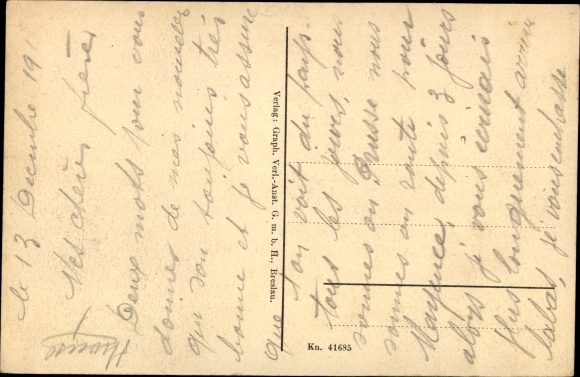 le 13 Decembre 191
Mes chers frères
Deux mots pour vous
donner de mes nouvelles
qui son toujours très
bonne et je vous assure
que l'on voit du pays
tous les jours, nous
sommes en Prusse nous
sommes en route pour
Mayence depuis 3 jours
alors je vous
plus longuement arrivé
labas, je vous embrasse
Verlag: Graph. Verl.-Anst. G. m. b. H., Breslau.
Kn. 41685